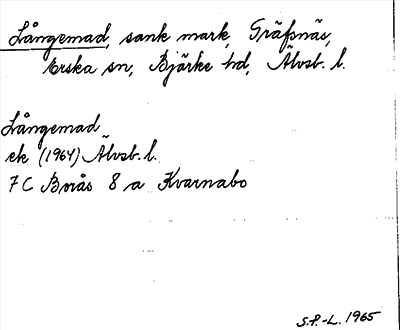 Långemad, sank mark, Gräfsnäs,
Erska sn, Bjärke hd, Älvsb. l.
Långemad
ek (1964) Älvsb. l.
7 C Borås 8 a Kvarnabo
S.P.-L. 1965